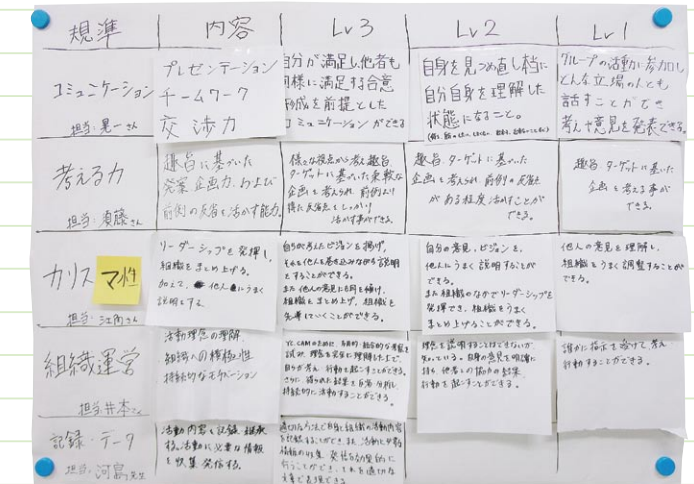 規準
内容
Lv3
Lv2
Lv1
コミュニケーション
担当:晃一さん
プレゼンテーション
チームワーク
交渉力
自分が満足し他者も
同様に満足する合意
形成を前提とした
コミュニケーションができる
自身を見つめ直し
自分自身を理解した
状態になること。
グループの活動に参加し
どんな立場の人とも
話すことができ
考えや意見を発表できる。
考える力
担当:須藤さん
趣旨に基づいた
発案 企画力、および
前例の反省を活かす能力。
様々な視点から考え趣旨、
ターゲットに基づいた柔軟な
企画を考えられ、前例より
得た反省点をしっかり
活かす事ができる。
趣旨、ターゲットに基づいた
企画を考えられ 前例の反省点
がある程度活かすことが
できる。
趣旨、ターゲットに基いた
企画を考える事が
できる。
カリスマ性
担当:江角さん
リーダーシップを発揮し、
組織をまとめ上げる。
加えて、他人にうまく
説明とする。
自らが考えたビジョンを掲げ、
それを他人を巻き込みながら説明
とすることができる。
また他人の意見にも耳を傾け、
組織をまとめ上げ、組織を
先導していくことができる。
自分の意見、ビジョンを、
他人にうまく説明することが
できる。
また組織のなかでリーダーシップを
発揮でき、組織をうまく
まとめ上げることができる。
他人の意見を理解し、
組織をうまく調整することが
できる。
組織運営
担当:井本さん
活動理念の理解
組織への積極性
持続的なモチベーション
YCAMのために、
試み、理念を完全に理解した上で、
自らが考え、行動を起こすことができる。
さらに、得られた結果を反省・分析し、
持続的に活動することができる。
理念を説明することはできないが
知っている。自身の意見を明確に
持ち、他者との協力の結果、
行動を起こすことができる。
誰かに指示を受けて考え
行動することができる。
記録・データ
担当:河嶌先生
活動内容を記録、継承
する。活動に必要な情報
を収集、発信する。
適切な方法で自身と組織の活動内容
を記録することができ、また、活動に必要な
情報の収集、発信を効果的に
行うことができ、それを適切な
文章で表現できる